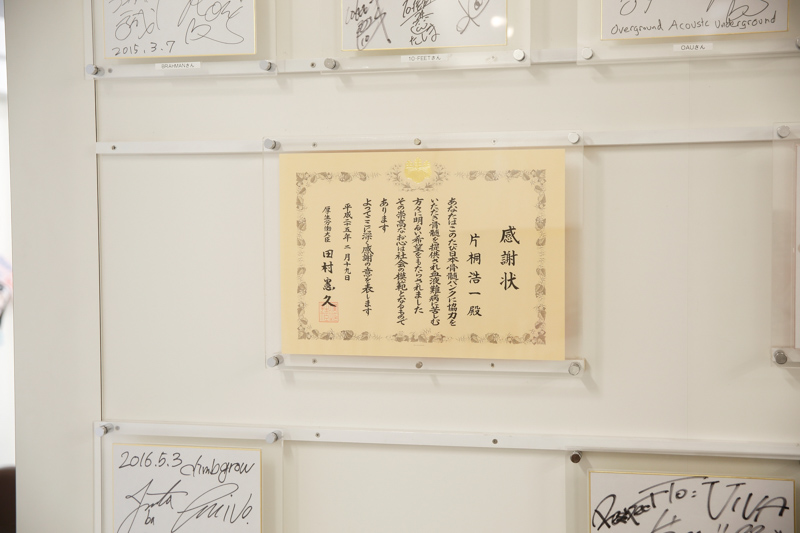 2015.3.7
BRAHMANさん
10-FEETさん
Overground Acoustic Underground
OAUさん
感謝状
片桐浩一殿
あなたはこのたび日本骨髄バンクに協力を
いただき骨髄を提供され血液難病に苦しむ
方々に明るい希望をもたらされました
その崇高なお心は社会の模範となるもので
あります
よってここに深く感謝の意を表します
平成二五年二月十九日
厚生労働大臣 田村憲久
2016.5.3 climbgrow